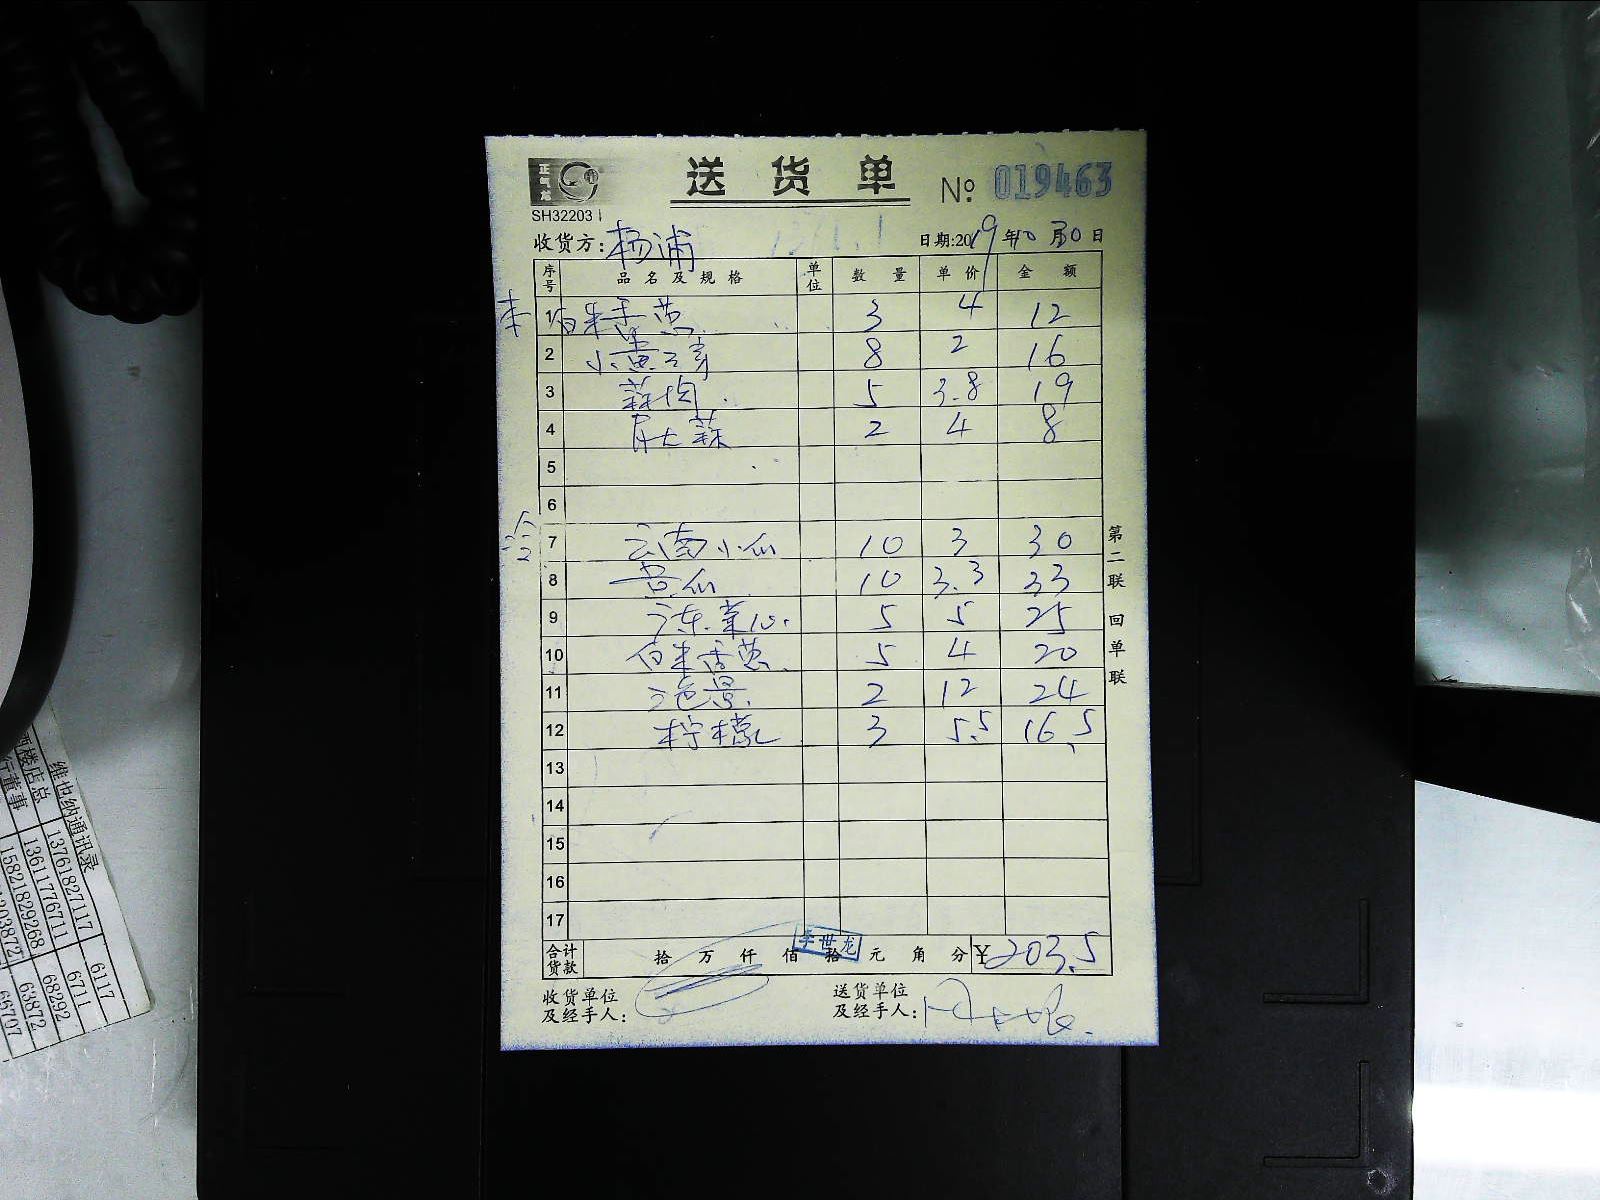 送货单 No. 019463
SH32203
收货方: 杨浦 日期:2019年10月30日
序号 品名及规格 单位 数量 单价 金额
1 白米香葱 3 4 12
2 小黄豆芽 8 2 16
3 蒜肉 5 3.8 19
4 大蒜 2 4 8
5
6
7 云南小瓜 10 3 30
8 黄瓜 10 3.3 33
9 广东菜心 5 5 25
10 白米香葱 5 4 20
11 2 12 24
12 柠檬 3 5.5 16.5
13
14
15
16
17
合计货款 拾万仟佰拾元角分 ¥203.5
李世龙
收货单位及经手人:
送货单位及经手人:
第二联 回单联
维也纳通讯录
酒楼店总 13761827117 6117
行董事 13611776711 6711
15821829268 68292
63872